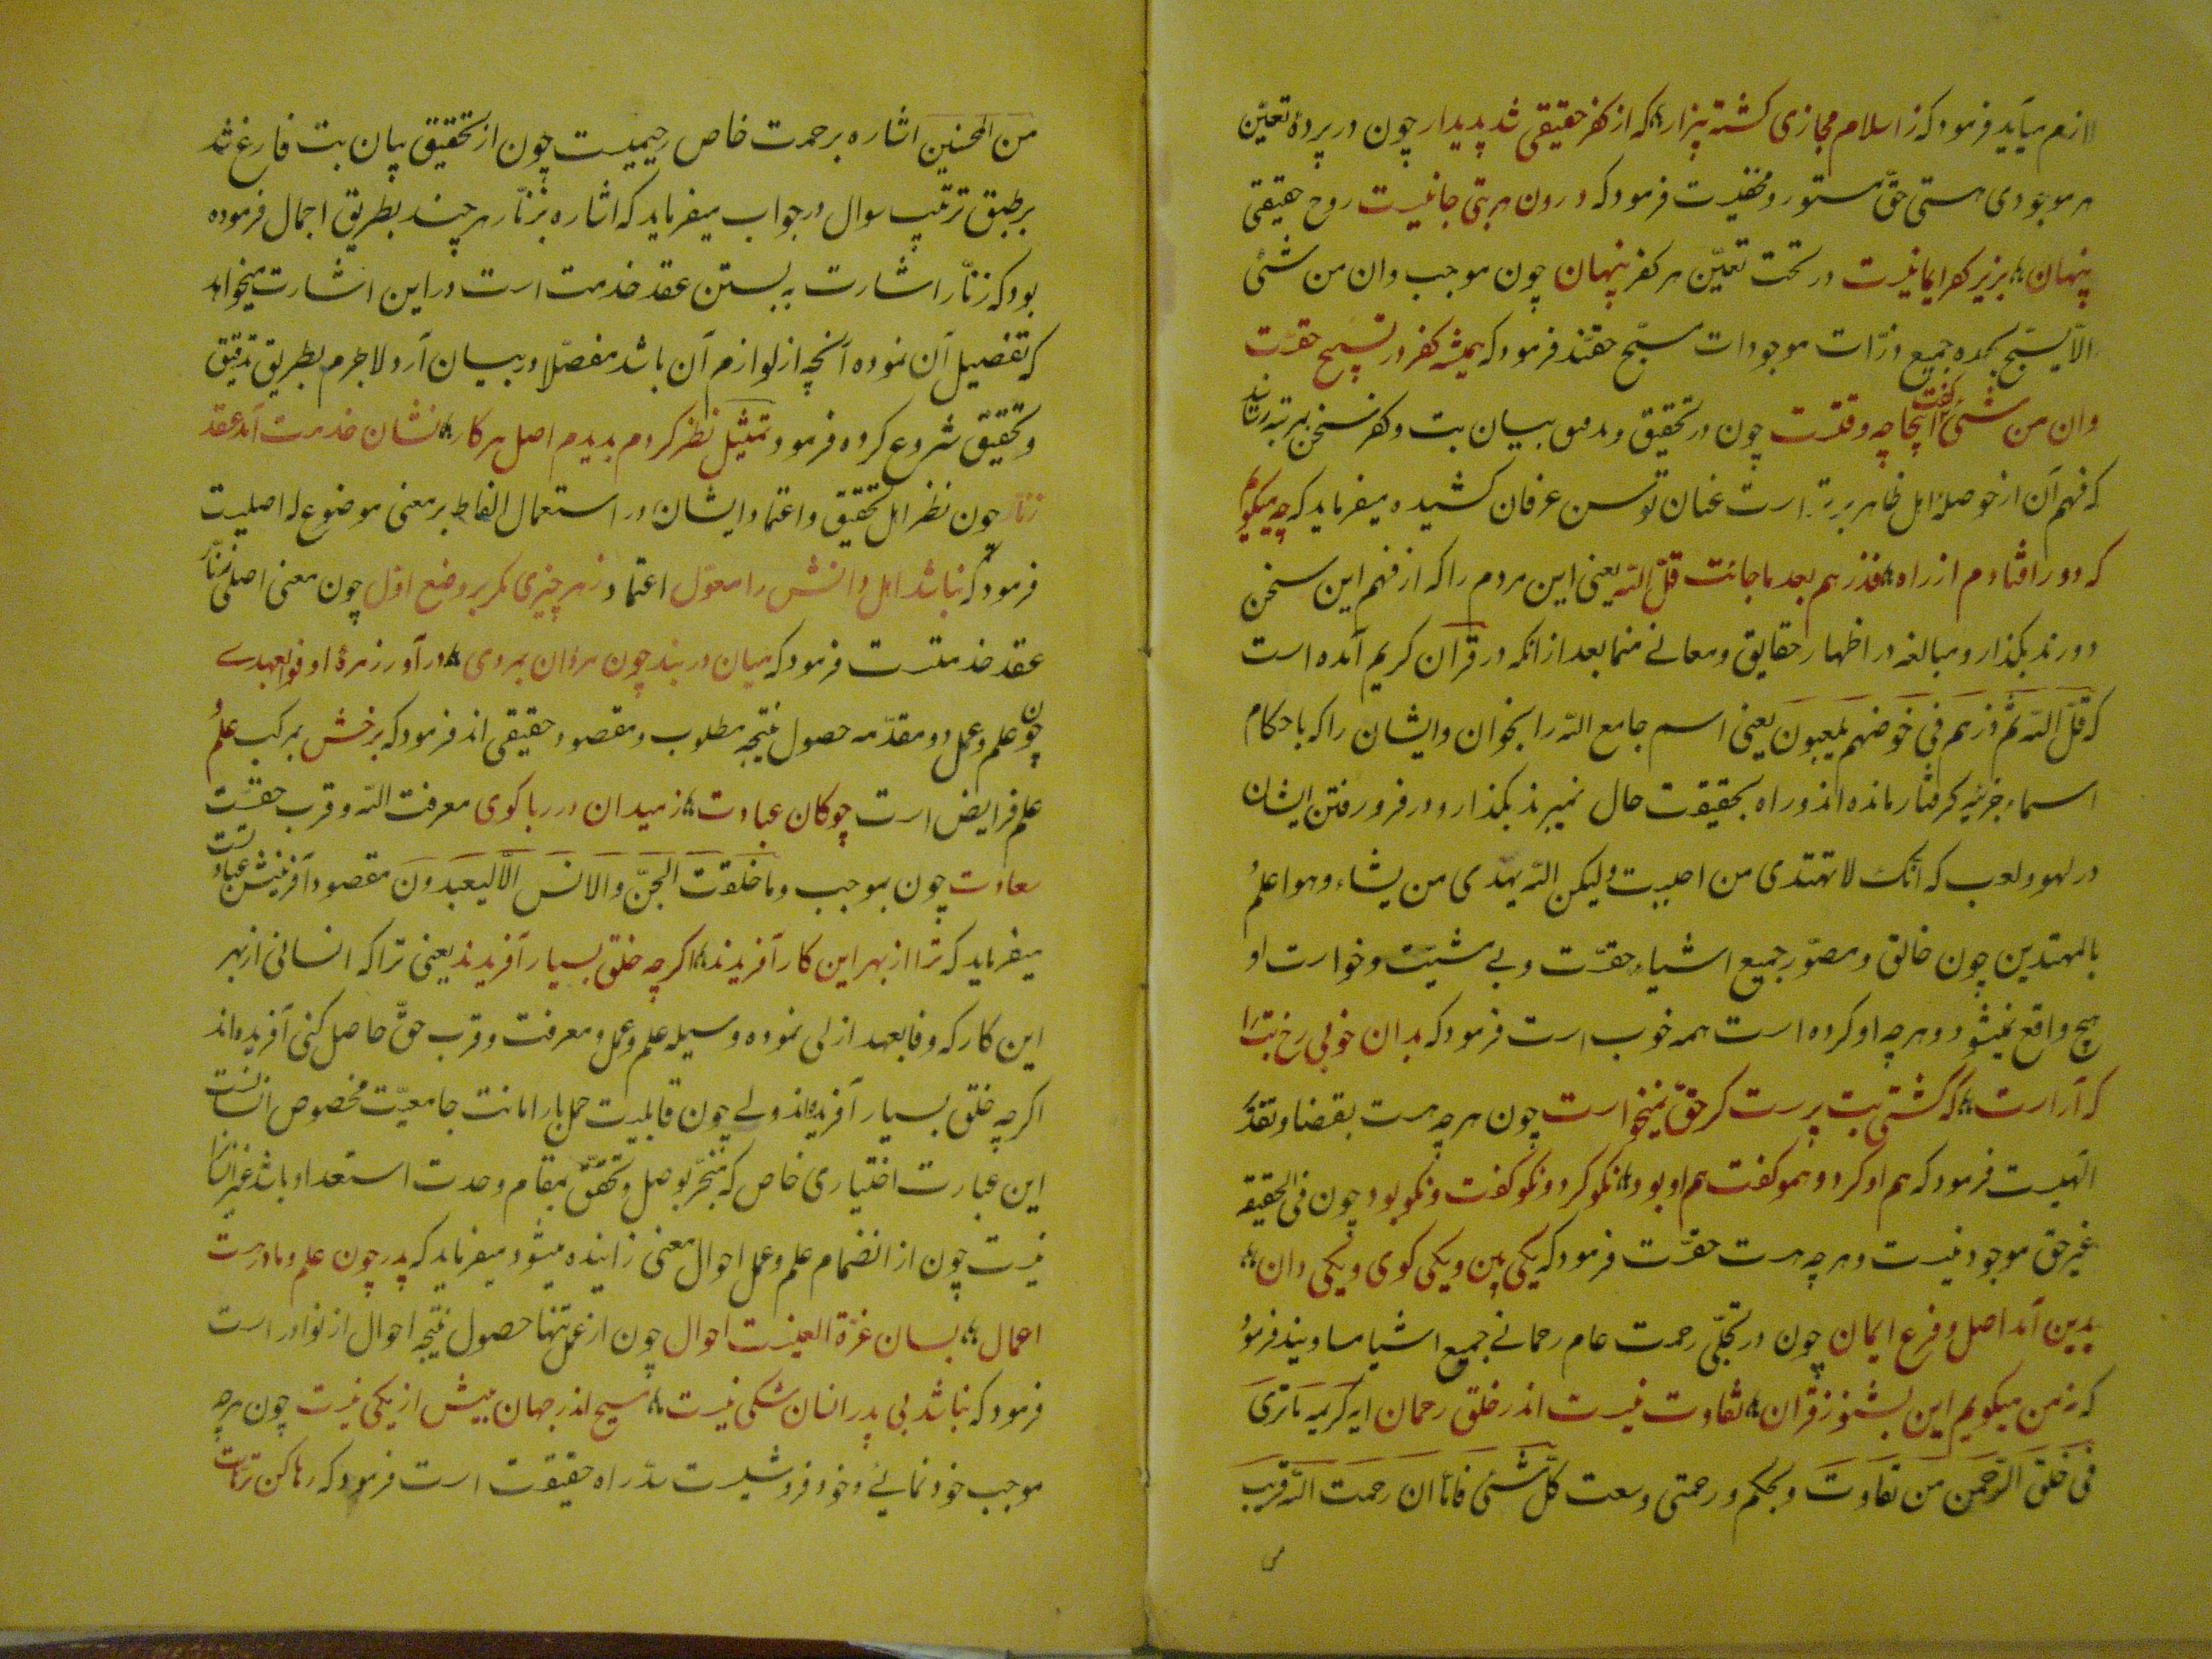 لازم میآید فرمود که ز اسلام مجازی گشته بیزار که از کفر حقیقی شد پدیدار چون در پردهٔ تعیّن
هر موجودی هستی حقّ مستور و مخفیست فرمود که درون هر بتی جانیست روح حقیقی
پنهان بزیر کفر ایمانیست در تحت تعیّن هر کفر پنهان چون موجب وان من شئی
الّا یسبّح بحمده جمیع ذرّات موجودات مسبّح حقند فرمود که همیشه کفر در تسبیح حقست
وان من شئ گفت اینجا چه دقتست چون در تحقیق و بیان بت و کفر سخن بمرتبه رساند
که فهم آن از حوصلهٔ اهل ظاهر برتر است عنان توسن عرفان کشیده میفرماید که چه میگویم
که دور افتادم از راه فذرهم بعد ما جائت قل اللّه یعنی این مردم را که از فهم این سخن
دورند بگذار و مبالغه در اظهار حقایق و معانے منما بعد از انکه در قرآن کریم آمده است
که قل اللّه ثمّ ذرهم فی خوضهم یلعبون یعنی اسم جامع اللّه را بخوان و ایشان را که باحکام
اسماء جزئیه گرفتار مانده اند و راه بحقیقت حال نمیبرند بگذار و در فرو رفتن ایشان
در لهو و لعب که انّک لا تهتدی من احببت ولیکن اللّه یهدی من یشاء و هو اعلمُ
بالمهتدین چون خالق و مصوّر جمیع اشیاء حقست و بے مشیّت و خواست او
هیچ واقع نمیشود و هر چه او کرده است همه خوب است فرمود که بدان خوبی رخ بت را
که آراست که گشتی بت پرست گر حقّ نمیخواست چون هر چه هست بقضا و تقدیر
الهیست فرمود که هم او کرد و همو گفت هم او بود نکو کرد و نکو گفت و نکو بود چون فی الحقیقه
غیر حق موجود نیست و هر چه هست حقست فرمود که یکی بین و یکی گوی و یکی دان
بدین آمد اصل و فرع ایمان چون در تجلّی رحمت عام رحمانے جمیع اشیا مساویند فرمود
که نه من میگویم این بشنو ز قرآن تفاوت نیست اندر خلق رحمان ایه کریمه ما تری
فی خلق الرّحمن من تفاوت و بحکم و رحمتی وسعت کلّ شئی فامّا ان رحمت اللّه قریب
من
من المحسنین اشاره برحمت خاص رحیمیست چون از تحقیق بیان بت فارغ شد
بر طبق ترتیب سوال در جواب میفرماید که اشاره بزنّار هر چند بطریق اجمال فرموده
بود که زنّار اشارت به بستن عقد خدمت است در این اشارت میخواهد
که تفصیل آن نموده آنچه از لوازم آن باشد مفصّلا در بیان آرد لاجرم بطریق تدقیق
و تحقیق شروع کرده فرمود تمثیل نظر کردم بدیدم اصل هر کار نشان خدمت آمد عقد
زنّار چون نظر اهل تحقیق و اعتماد ایشان در استعمال الفاظ بر معنی موضوع له اصلیست
فرمود که نباشد اهل دانش را معوّل اعتماد ز هر چیزی مگر بر وضع اوّل چون معنی اصلی زنّار
عقد خدمتست فرمود که میان در بند چون مردان بمردی در آور زمرهٔ اوفوا بعهدے
چون علم و عمل دو مقدّمه حصول نتیجه مطلوب و مقصود حقیقی اند فرمود که برخش مرکب علمُ
علم فرایض است چوگان عبادت ز میدان در ربا گوی معرفت اللّه و قرب حقست
سعادت چون بموجب وما خلقت الجنّ والانس الّا لیعبدون مقصود آفرینش عبادتست
میفرماید که ترا از بهر این کار آفریدند اگر چه خلق بسیار آفریدند یعنی ترا که انسانی از بهر
این کار که وفا بعهد ازلی نموده وسیله علم و عمل و معرفت و قرب حقّ حاصل کنی آفریده اند
اگر چه خلق بسیار آفریده اند ولے چون قابلیت حمل بار امانت جامعیّت مخصوص انسانست
این عبارت اختیاری خاص که منجرّ بوصل و تحقّق بمقام وحدت استعداد باشد غیر انسانرا
نیست چون از انضمام علم و عمل احوال معنی زاینده میشود میفرماید که پدر چون علم و مادر هست
اعمال بسان قرّة العینست احوال چون از عمل تنها حصول نتیجه احوال از نوادر است
فرمود که نباشد بی پدر انسان شکی نیست مسیح اندر جهان بیش از یکی نیست چون هر چه
موجب خود نمائے و خود فروشیست سدّ راه حقیقت است فرمود که رها کن ترّهات